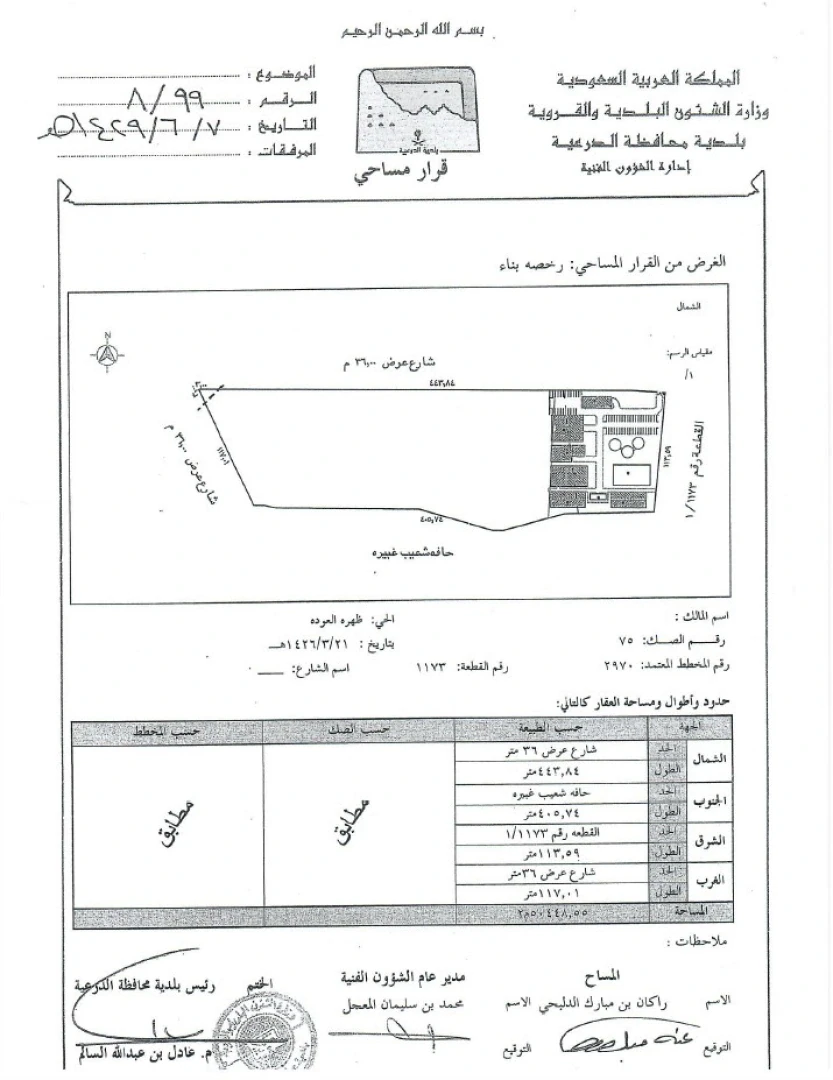 بسم الله الرحمن الرحيم
المملكة العربية السعودية
وزارة الشئون البلدية والقروية
بلدية محافظة الدرعية
إدارة الشؤون الفنية
بلدية الدرعية
قرار مساحي
الموضوع :
الرقم : ٨/٩٩
التاريخ : ١٤٢٩/٦/٧هـ
المرفقات :
الغرض من القرار المساحي: رخصه بناء
الشمال
مقياس الرسم:
١/
N
شارع عرض ٣٦,٠٠ م
٤٤٣,٨٤
شارع عرض ٣٦,٠٠ م
١١٧,٠١
١١٣,٥٩
القطعة رقم ١/١١٧٣
٤٠٥,٧٤
حافه شعيب غبيره
اسم المالك :
الحي: ظهره العوده
رقم الصك: ٧٥
بتاريخ : ١٤٢٦/٣/٢١هـ
رقم المخطط المعتمد: ٢٩٧٠
رقم القطعة: ١١٧٣
اسم الشارع:
حدود وأطوال ومساحة العقار كالتالي:
الجهة حسب الطبيعة حسب الصك حسب المخطط
الشمال الحد شارع عرض ٣٦ متر
الطول ٤٤٣,٨٤متر
الجنوب الحد حافه شعيب غبيره
الطول ٤٠٥,٧٤متر
الشرق الحد القطعه رقم ١/١١٧٣
الطول ١١٣,٥٩متر
الغرب الحد شارع عرض ٣٦متر
الطول ١١٧,٠١متر
مطابق
مطابق
المساحة ٥٠٤٤٨,٥٥م٢
ملاحظات :
المساح
الاسم راكان بن مبارك الدليحي
التوقيع
مدير عام الشؤون الفنية
الاسم محمد بن سليمان المعجل
التوقيع
الختم
رئيس بلدية محافظة الدرعية
م. عادل بن عبدالله السالم